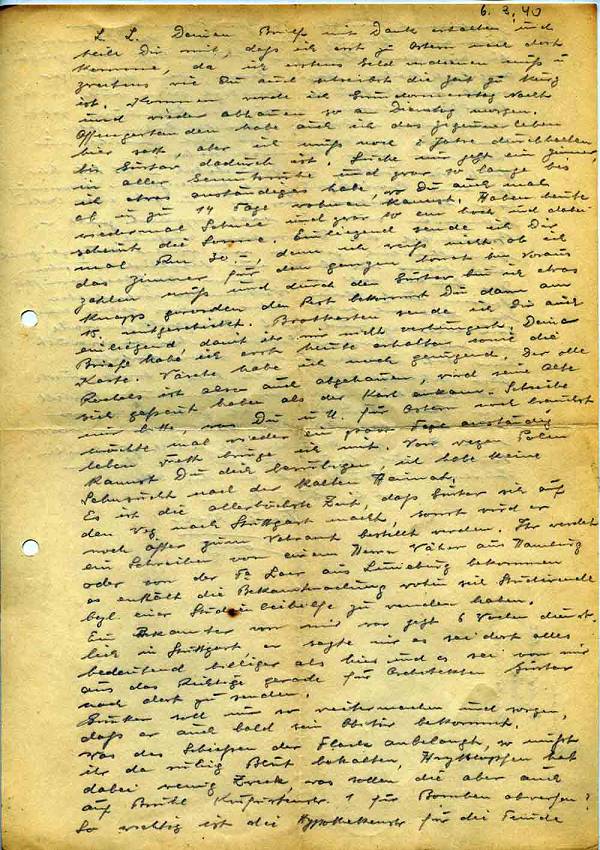 6. 3. 40
L. L. Deinen Brief mit Dank erhalten und
teile Dir mit, daß ich erst zu Ostern nach dort
komme, da ich erstens Geld verdienen muß u
zweitens wie Du auch schreibst die Zeit zu kurz
ist. Kommen werde ich Gründonnerstag Nacht
und wieder abhauen so am Dienstag morgen.
Offengestanden habe auch ich das Zigeunerleben
hier satt, aber ich muß noch 2 Jahre durchhalten
bis Günter dadurch ist. Suche mir jetzt ein Zimmer,
in aller Gemütsruhe und zwar so lange bis
ich etwas anständiges habe, wo Du auch mal
ab u zu 14 Tage wohnen kannst. Haben heute
wiedermal Schnee und zwar 10 cm hoch und dabei
scheint die Sonne. Einliegend sende ich Dir
mal Rm 30.-, denn ich weiß nicht ob ich
das Zimmer für den ganzen Monat im Voraus
zahlen muß und durch den Günter bin ich etwas
knapp geworden den Rest bekommst Du dann am
15. mitgeschickt. Brotkarten sende ich Dir auch
einliegend, damit Ihr mir nicht verhungert. Deine
Briefe habe ich erst heute erhalten sowie die
Karte. Wäsche habe ich noch genügend. Der olle
ist also auch abgehauen, wird seine Alte
sich gefreut haben als der Karl ankam. Schreibe
mir bitte, was Du u U. für Ostern noch brauchst
möchte mal wieder ein paar Tage anständig
leben bringe ich mit. Von wegen Polen
kannst Du dich beruhigen, ich habe keine
Sehnsucht nach der kalten Heimat.
Es ist die allerhöchste Zeit, daß Günter sich auf
den Weg nach Stuttgart macht, sonst wird er
noch öfter zum bestellt werden. Ihr werdet
ein Schreiben von einem Herrn Väter aus Hamburg
oder von der Fa Laer aus Lüneburg bekommen
es enthält die Bekanntmachung wohin sich Studierende
bezl. einer Studienbeihilfe zu wenden haben.
Ein Bekannter von mir war jetzt 6 Wochen dienst-
lich in Stuttgart, er sagte mir es sei dort alles
bedeutend billiger als hier und es sei von mir
aus das Richtige gerade für Architekten Günter
nach dort zu senden.
Günter soll nur so weitermachen und sorgen,
daß er auch bald sein Abitür bekommt.
Was das Schießen der Flack anbelangt, so müßt
ihr da ruhig Blut behalten, Herzklopfen hat
dabei wenig Zweck, was sollen die aber auch
auf Brühl Kurfürstenstr. 1 für Bomben abwerfen?
So wichtig ist die für die Feinde